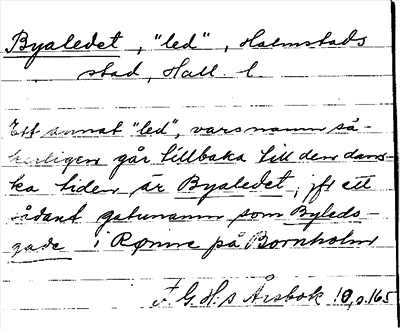 Byaledet, "led", Halmstads
stad, Hall. l.
Ett annat "led", vars namn sä-
kerligen går tillbaka till den dans-
ka tiden är Byaledet, jfr ett
sådant gatunamn som Byleds-
gade i Rønne på Bornholm
F. G. H:s Årsbok 10, s.165